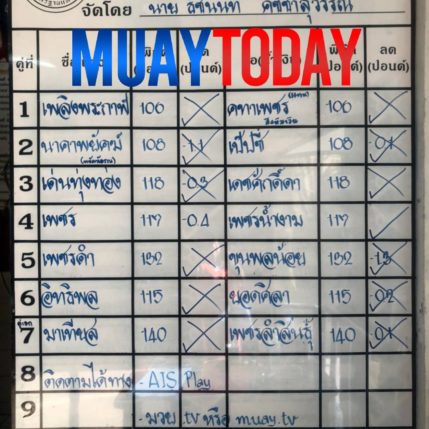 จัดโดย นาย ธชนนท
MUAYTODAY
คู่ที่ พิกัด (ปอนด์) ลด (ปอนด์) พิกัด (ปอนด์) ลด (ปอนด์)
1 เพลิงพระกาฬ 106 คฑาเพชร 106
2 นาคาพยัคฆ์ 108 -1.1 เป๊ปซี่ 108 -0.1
3 เด่นทุ่งทอง 118 -0.3 เดชศักดิ์ดา 118
4 เพชร 117 -0.4 เพชรน้ำงาม 117
5 เพชรดำ 132 ขุนพลน้อย 132 -1.3
6 อิทธิพล 115 ยอดศิลา 115 -0.2
7 มาเทียส 140 เพชรลำสินธุ์ 140 -0.1
8 ติดตามได้ทาง - AIS Play
9 - มวย.tv หรือ muay.tv